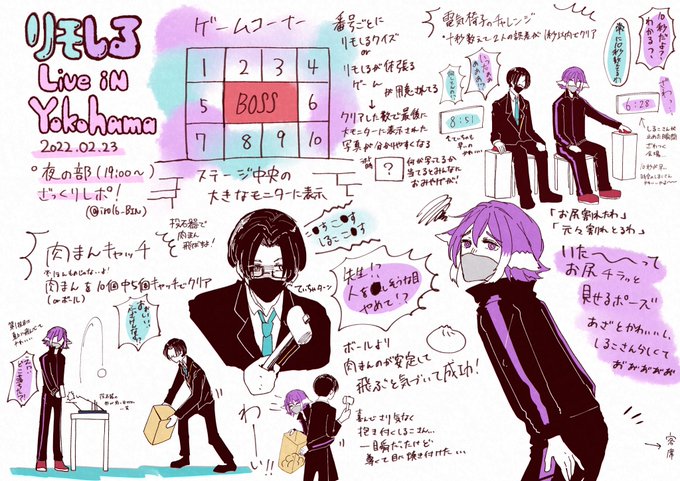 リモしる
Live iN
Yokohama
2022.02.23
夜の部(19:00〜)
ざっくりレポ!
ゲームコーナー
1 2 3 4
5 BOSS 6
7 8 9 10
ステージ中央の
大きなモニターに表示
番号ごとに
リモしるクイズ
or
リモしるが頑張る
ゲーム
が用意されてる
↓
クリアした数で最後に
大モニターに表示された
写真が分かりやすくなる
?
何が写てるか
当てるとみんなに
おみやげが!
電気椅子のチャレンジ
・十秒数えて2人の誤差が1秒以内でクリア
10秒だよ?
わかるっ、
8:51
6:28
「お尻割れたわ」
「元々割れとるわ」
肉まんキャッチ
投石器で
肉まん
飛ばすよ!
肉まんを10個中5個キャッチでクリア
(orボール)
先生!?
人を●しそうな目
やめて!?
ボールより
肉まんのが安定して
飛ぶと気づいて成功!
わー
い!!
喜んでさり気なく
抱き付くしるこさん…
一瞬だったけど
尊くて目に焼き付けた…
いた〜〜って
お尻チラッと
見せるポーズ
あざとかわいいし、
しるこさんらしくて
おぉおぉおぉおぉおぉ
→客席